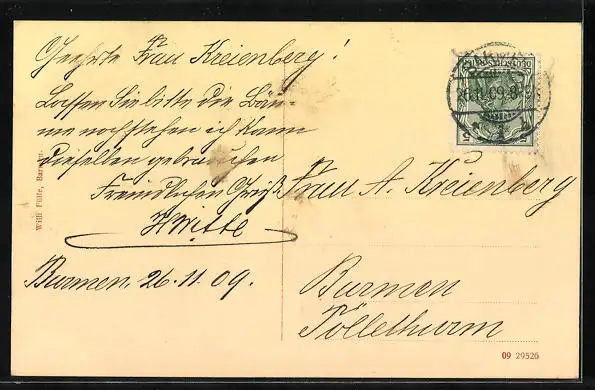 Geehrte Frau Kreienberg!
Lassen Sie bitte die Bäu-
me noch stehen ich kann
dieselben gebrauchen
Freundlichen Gruß
H Witte
Barmen. 26.11.09.
Frau A. Kreienberg
Barmen
Töllethurm
Willi Fülle, Barmen.
DEUTSCHES REICH
26.11.09.8-
5
5
09 29526